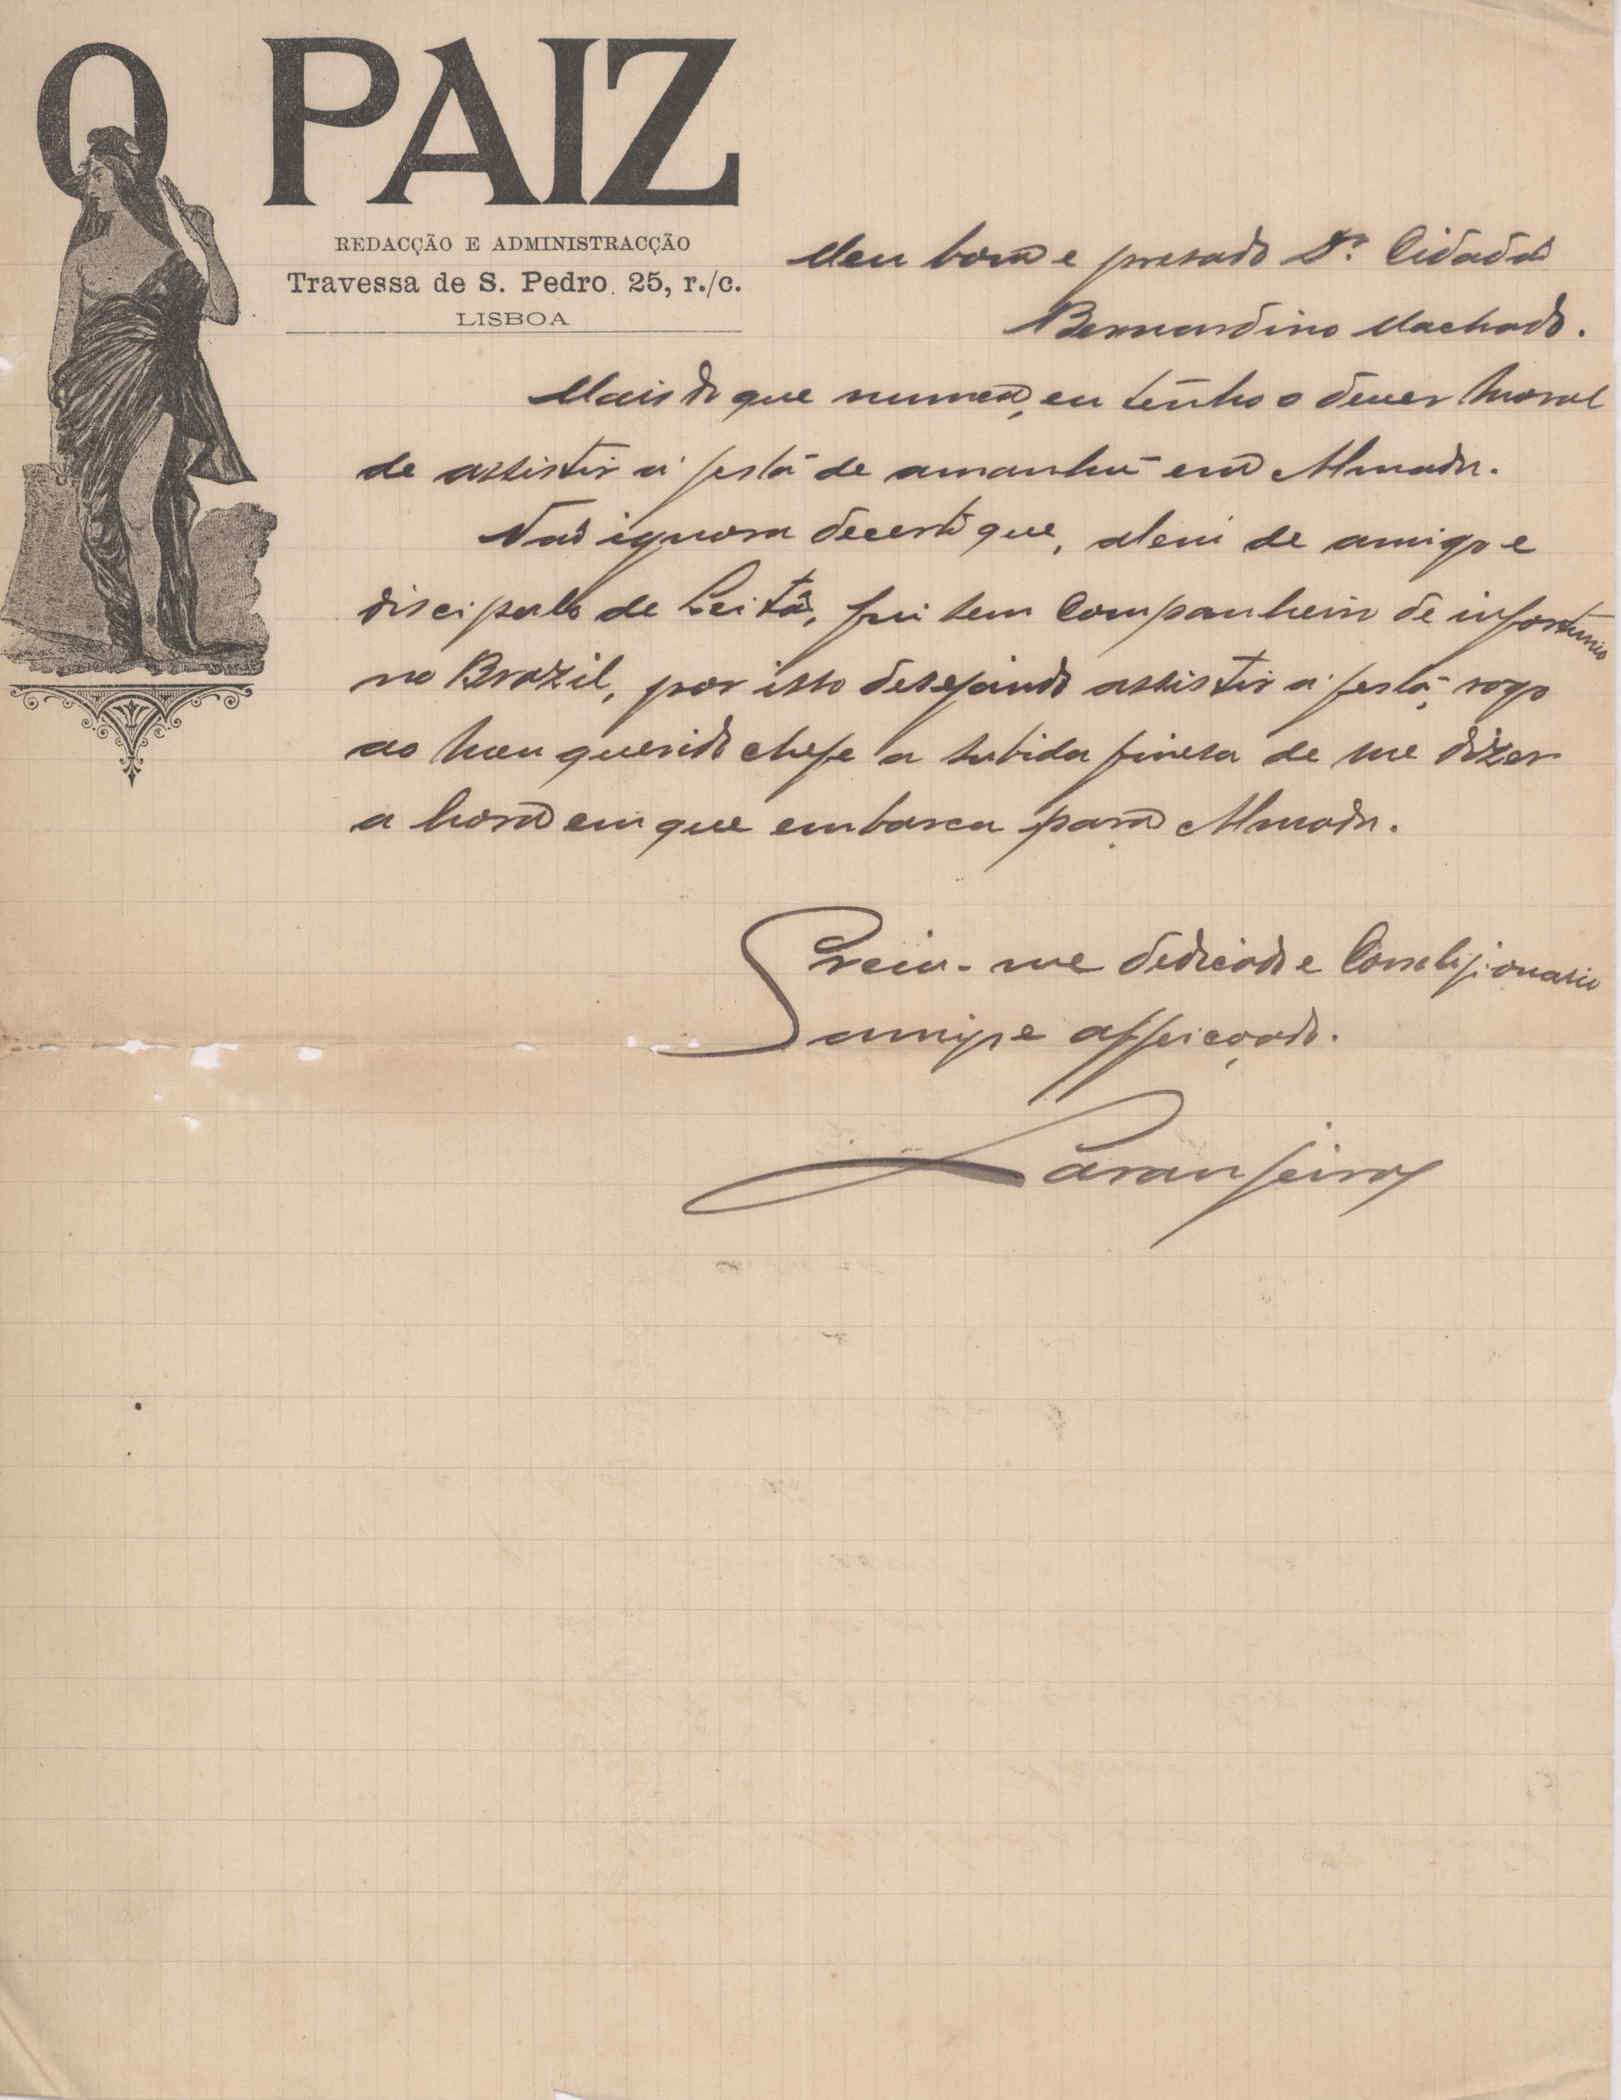 O PAIZ
REDACÇÃO E ADMINISTRACÇÃO
Travessa de S. Pedro, 25, r./c.
LISBOA
Meu bom e presado Dr. Cidadão
Bernardino Machado.
Mais do que nunca, eu tenho o dever moral
de assistir á festa de amanhã em Almada.
Não ignora decerto que, alem de amigo e
discipulo de Leitão, fui seu companheiro de infortunio
no Brazil, por isso desejando assistir á festa, rogo
ao meu querido chefe a subida finesa de me dizer
a hora em que embarca para Almada.
Creia-me dedicado e Correligionario
amigo e affeiçoado.
Laranjeira